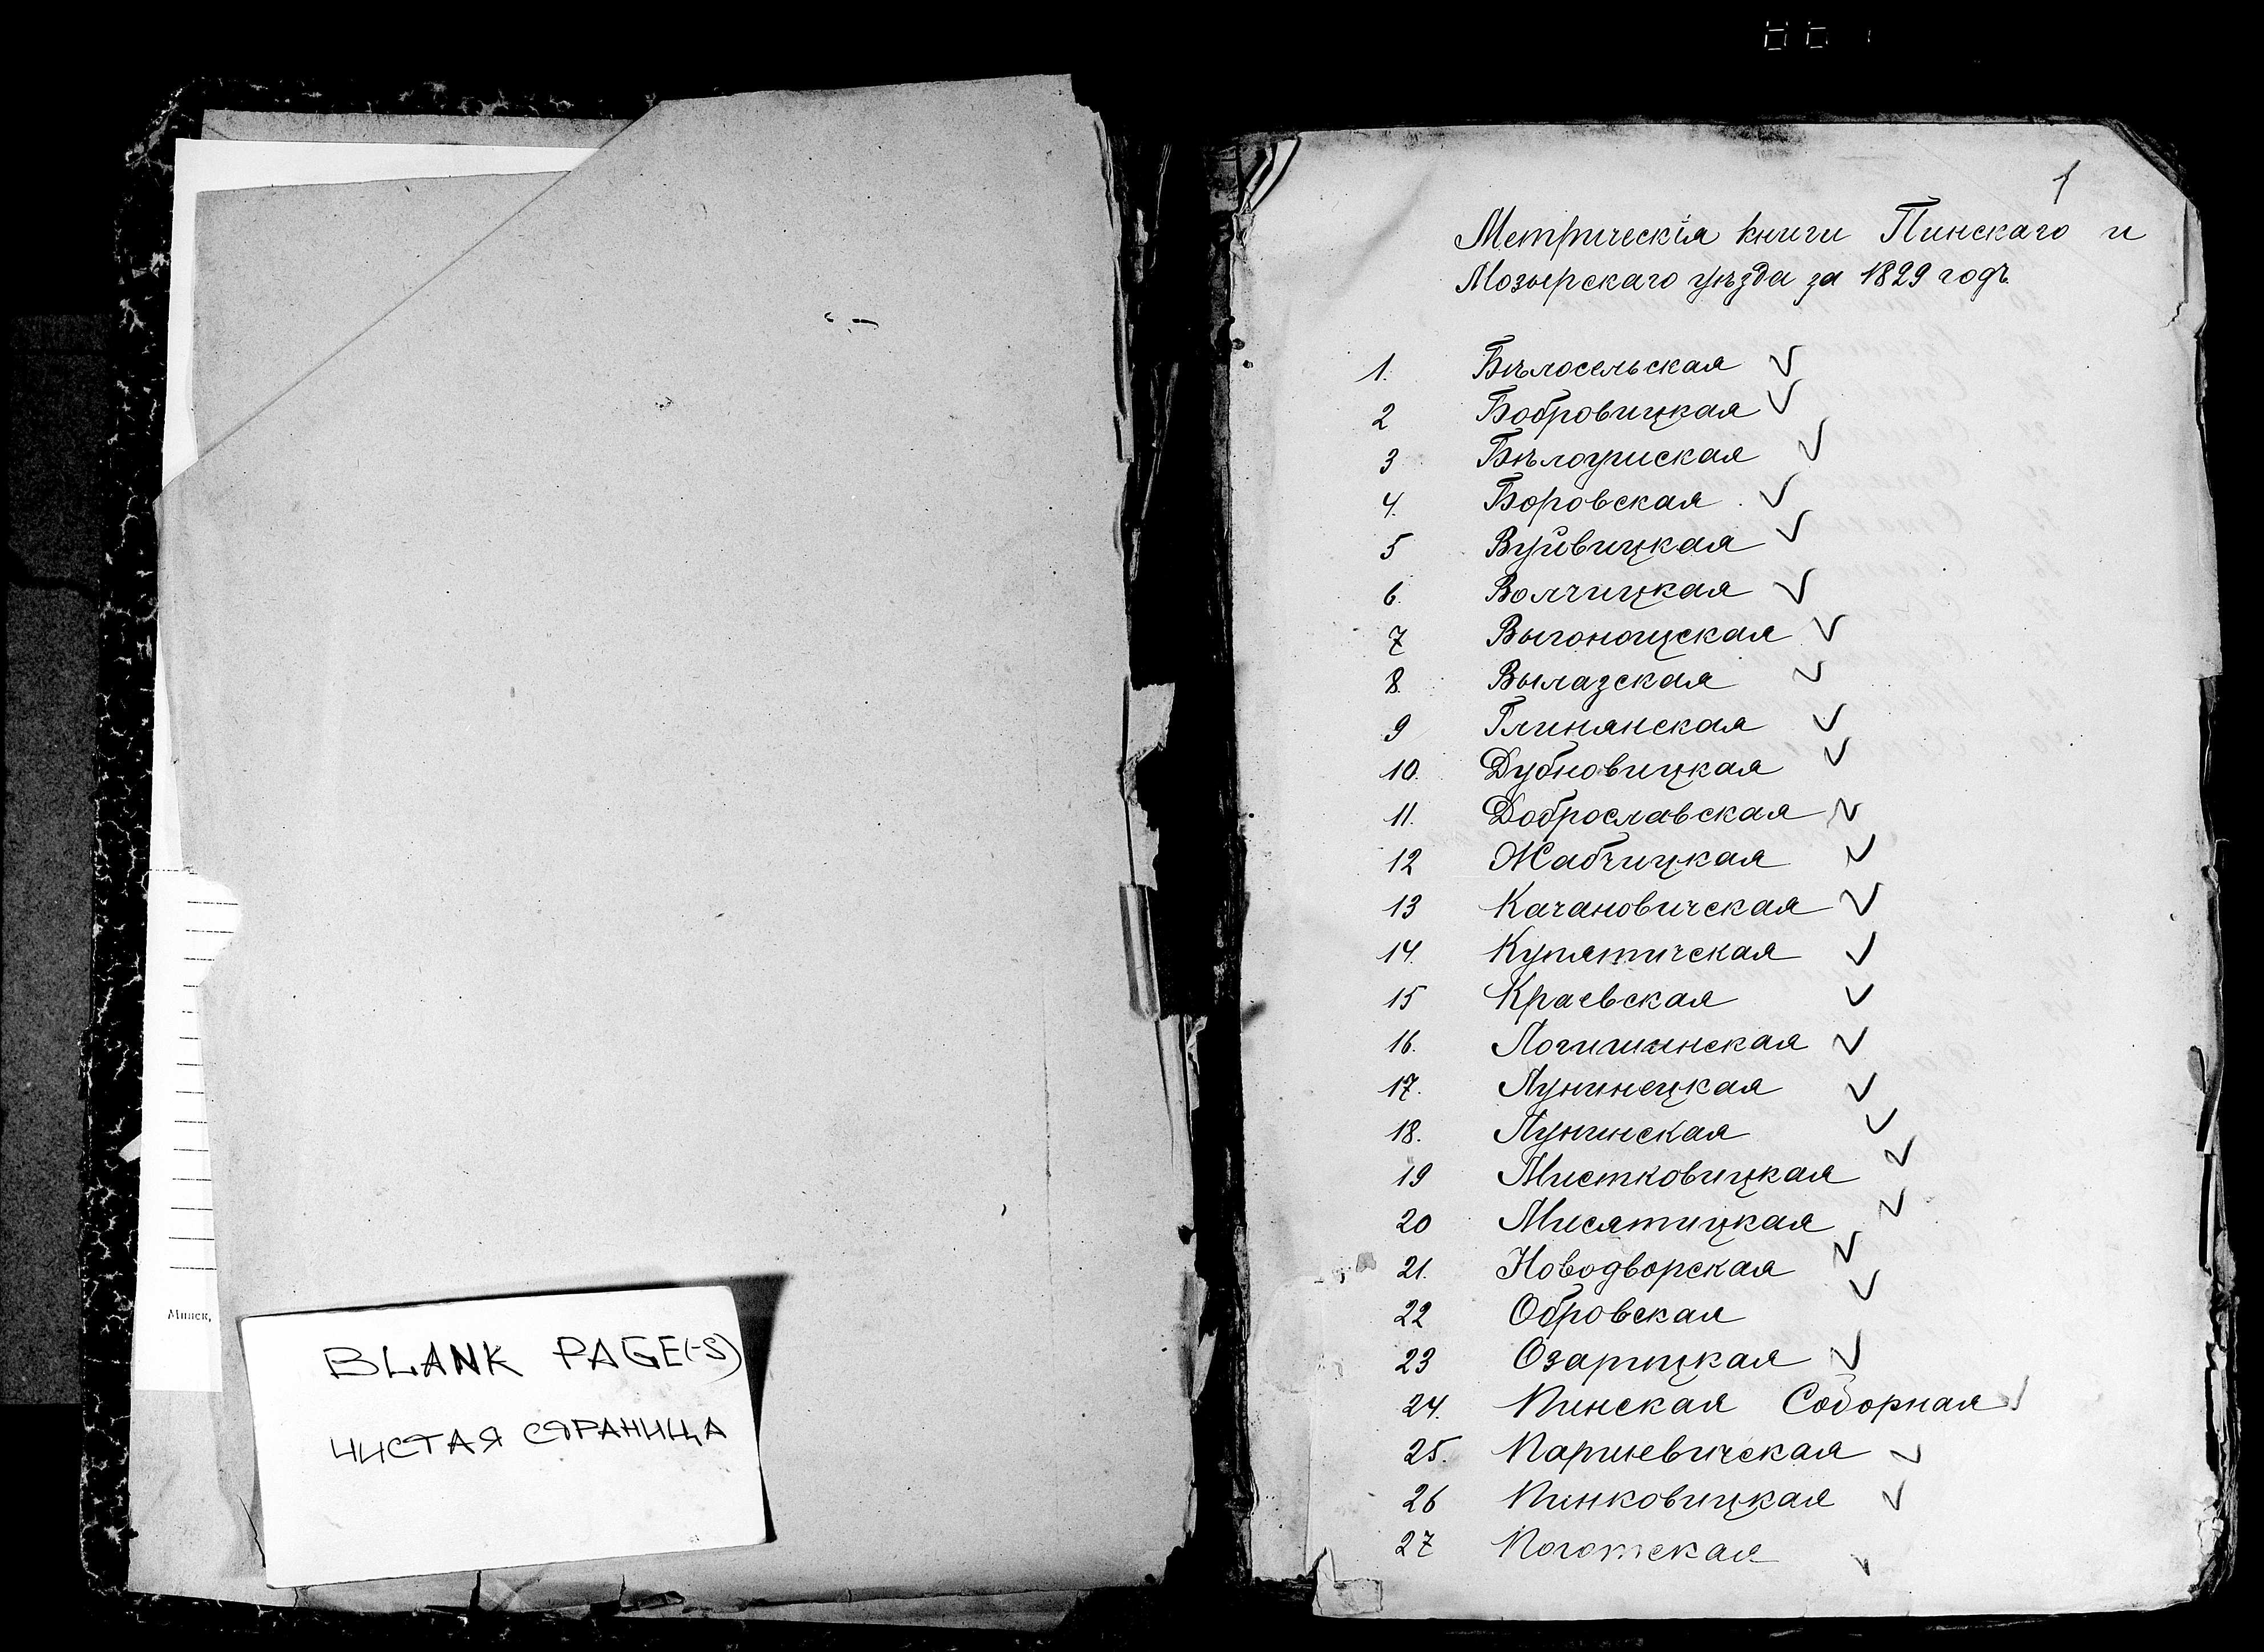 Минск,
BLANK PAGE(-S)
ЧИСТАЯ СТРАНИЦА
1
Метрическія книги Пинскаго и
Мозырскаго уѣзда за 1829 годъ.
1. Бѣлосельская
2 Бобровицкая
3 Бѣлоушская
4. Боровская
5 Вуйвицкая
6. Волчицкая
7 Выгонощская
8. Вылазская
9 Глинянская
10. Дубновицкая
11. Доброславская
12 Жабчицкая
13 Качановичская
14. Купятичская
15 Краевская
16. Логишинская
17. Лунинецкая
18. Лунинская
19 Мистковицкая
20 Мисятицкая
21. Новодворская
22 Обровская
23 Озарицкая
24. Пинская Соборная
25. Паршевичская
26 Пинковицкая
27 Погостская